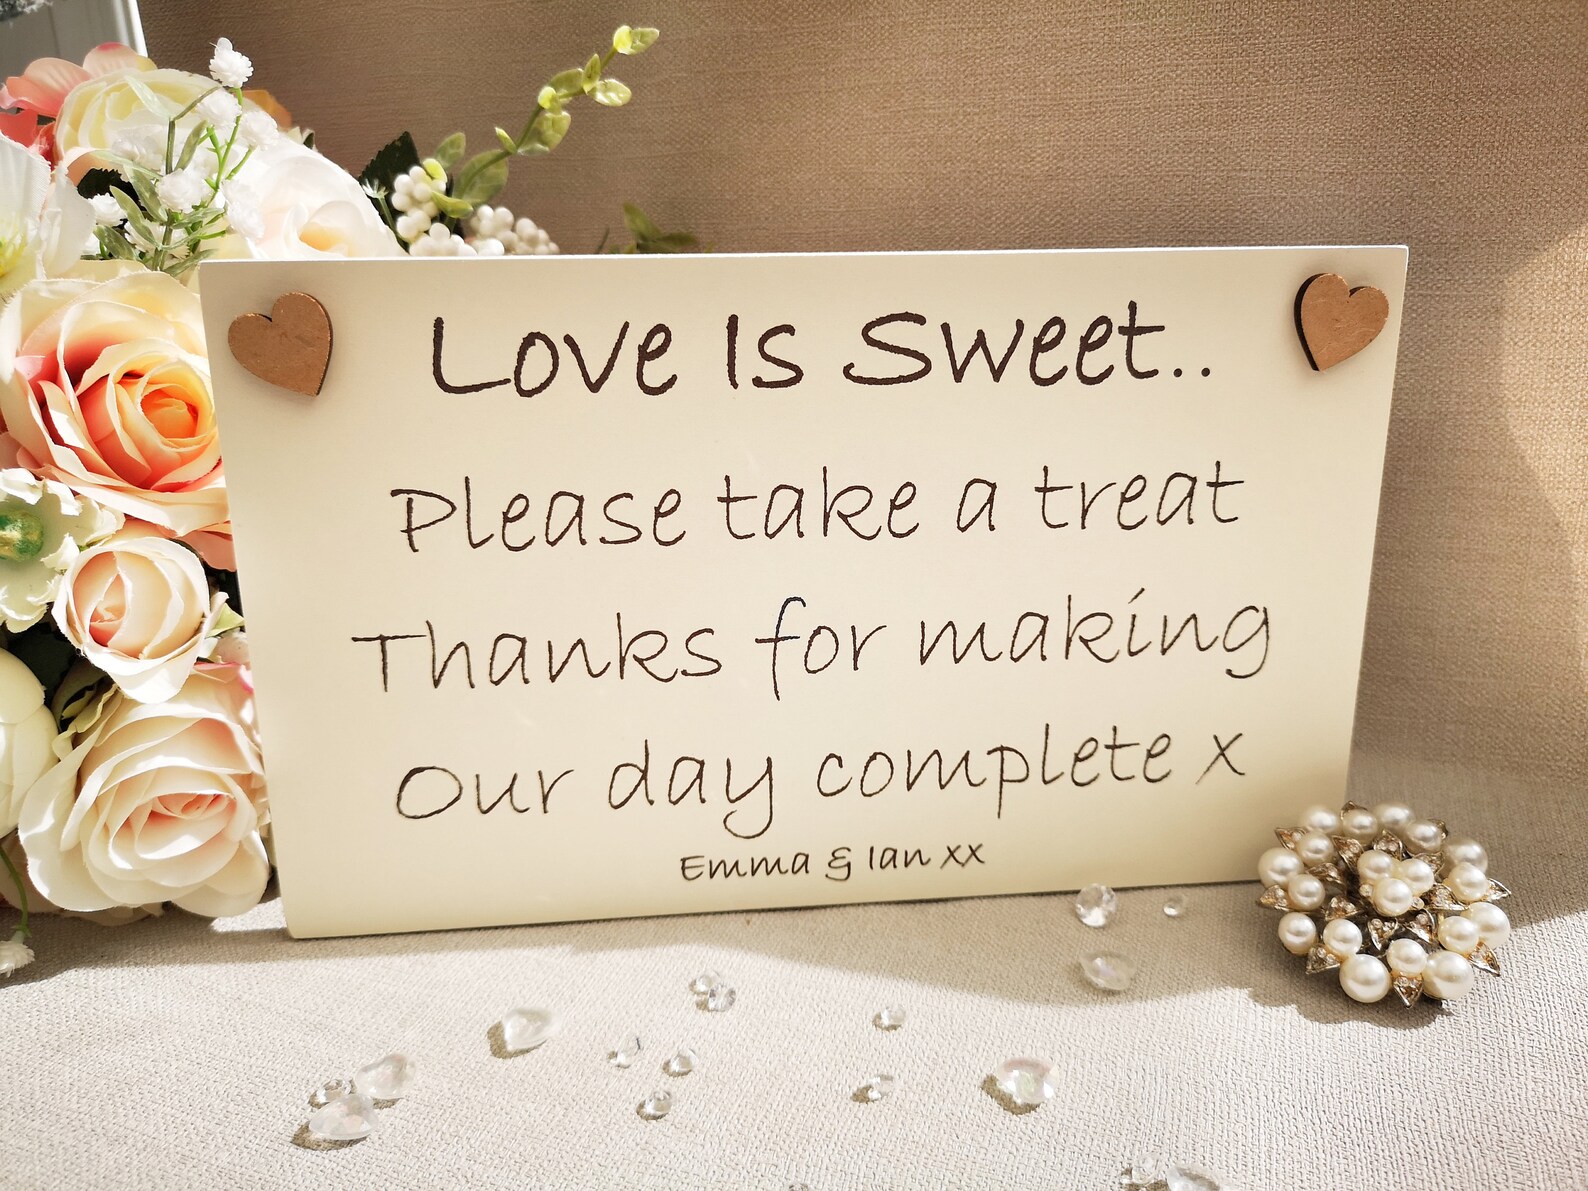 Love Is Sweet..
Please take a treat
Thanks for making
Our day complete x
Emma & Ian xx